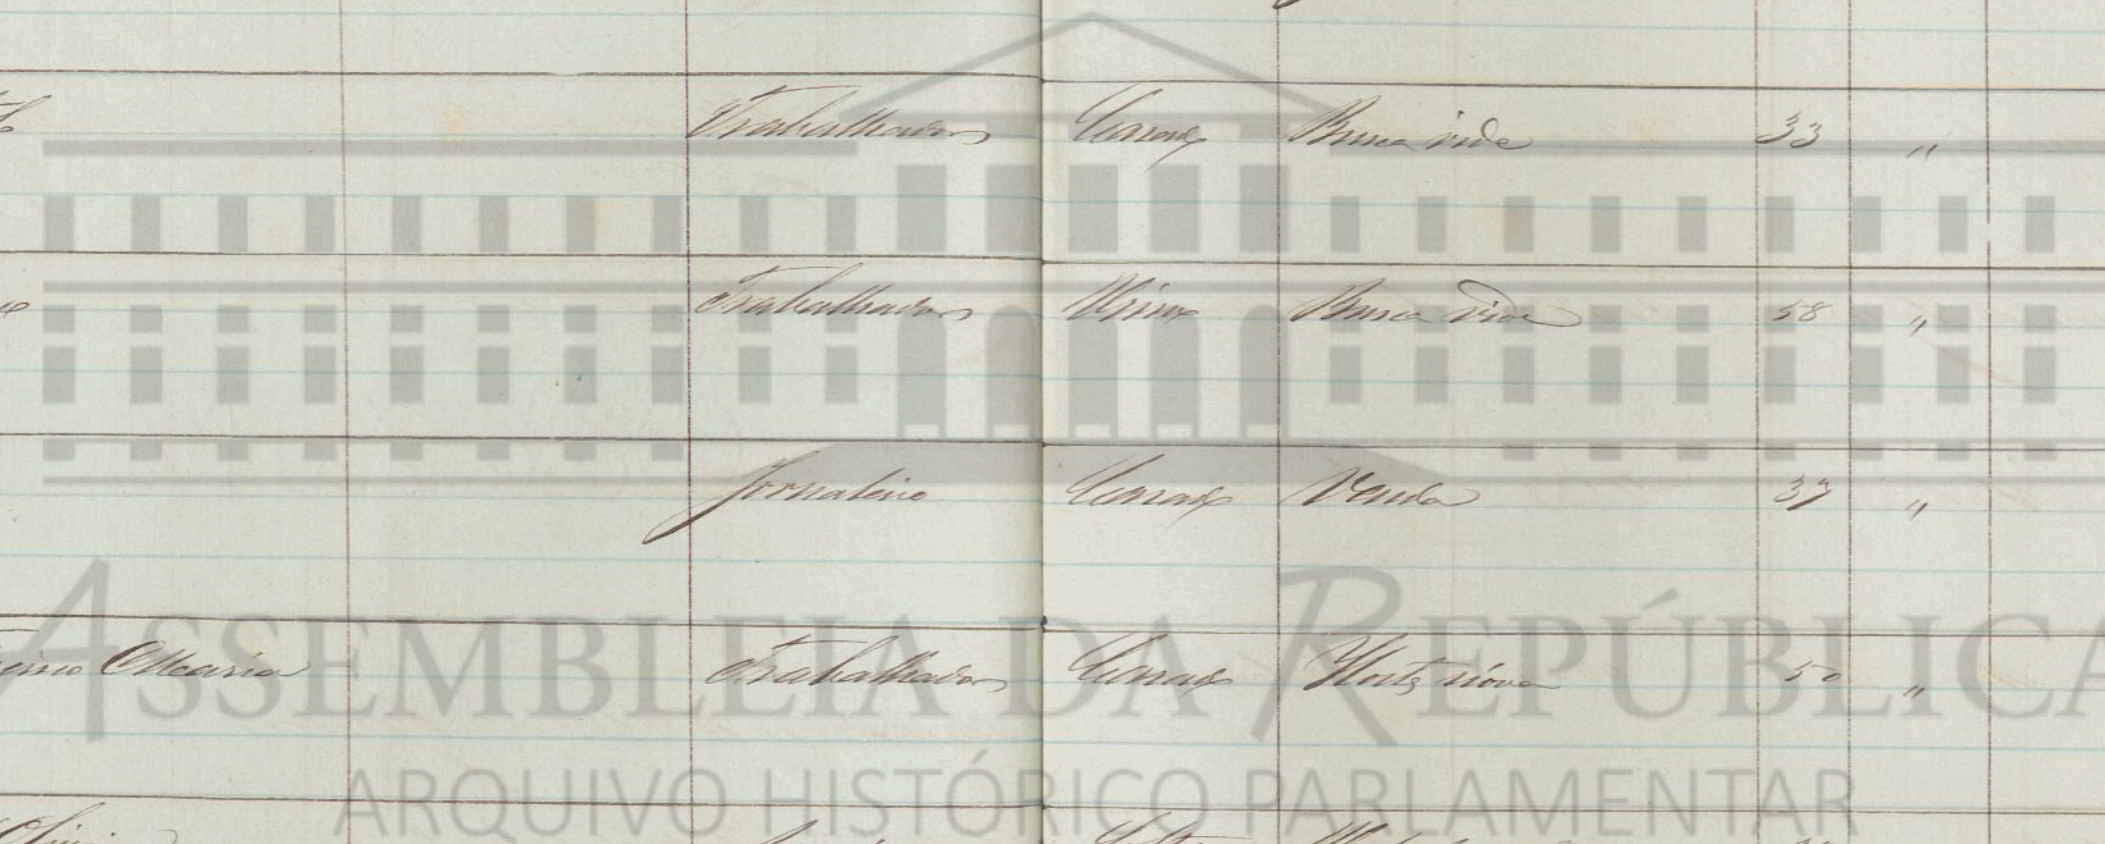 Trabalhador Casado Busca vida 33 "
Trabalhador Viuvo Busca vida 58 "
Jornaleiro Casado Venda 37 "
Maria Trabalhador Casado Horta nova 50 "
ASSEMBLEIA DA REPÚBLICA
ARQUIVO HISTÓRICO PARLAMENTAR